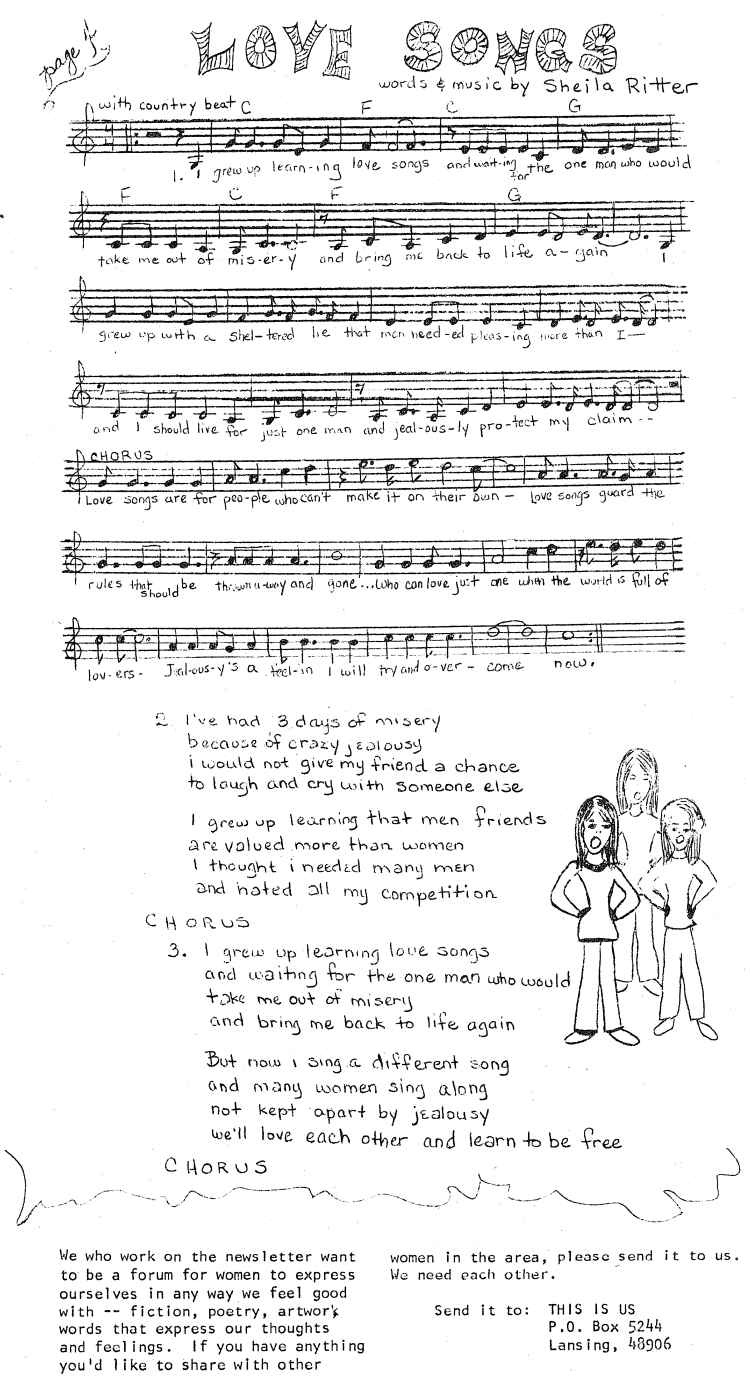 page
LOVE SONGS
words & music by Sheila Ritter
with country beat C F C G
1. I grew up learn-ing love songs and wait-ing for the one man who would
F C F G
take me out of mis-er-y and bring me back to life a-gain I
grew up with a shel-tered lie that men need-ed pleas-ing more than I—
and I should live for just one man and jeal-ous-ly pro-tect my claim --
CHORUS
Love songs are for peo-ple who can't make it on their own - Love songs guard the
rules that should be thrown a-way and gone...Who can love just one when the world is full of
lov-ers - Jeal-ous-y's a feel-in I will try and o-ver-come now.
2. I've had 3 days of misery
because of crazy jealousy
i would not give my friend a chance
to laugh and cry with someone else
I grew up learning that men friends
are valued more than women
I thought i needed many men
and hated all my competition
CHORUS
3. I grew up learning love songs
and waiting for the one man who would
take me out of misery
and bring me back to life again
But now i sing a different song
and many women sing along
not kept apart by jealousy
we'll love each other and learn to be free
CHORUS
We who work on the newsletter want
to be a forum for women to express
ourselves in any way we feel good
with -- fiction, poetry, artwork
words that express our thoughts
and feelings. If you have anything
you'd like to share with other
women in the area, please send it to us.
We need each other.
Send it to: THIS IS US
P.O. Box 5244
Lansing, 48906